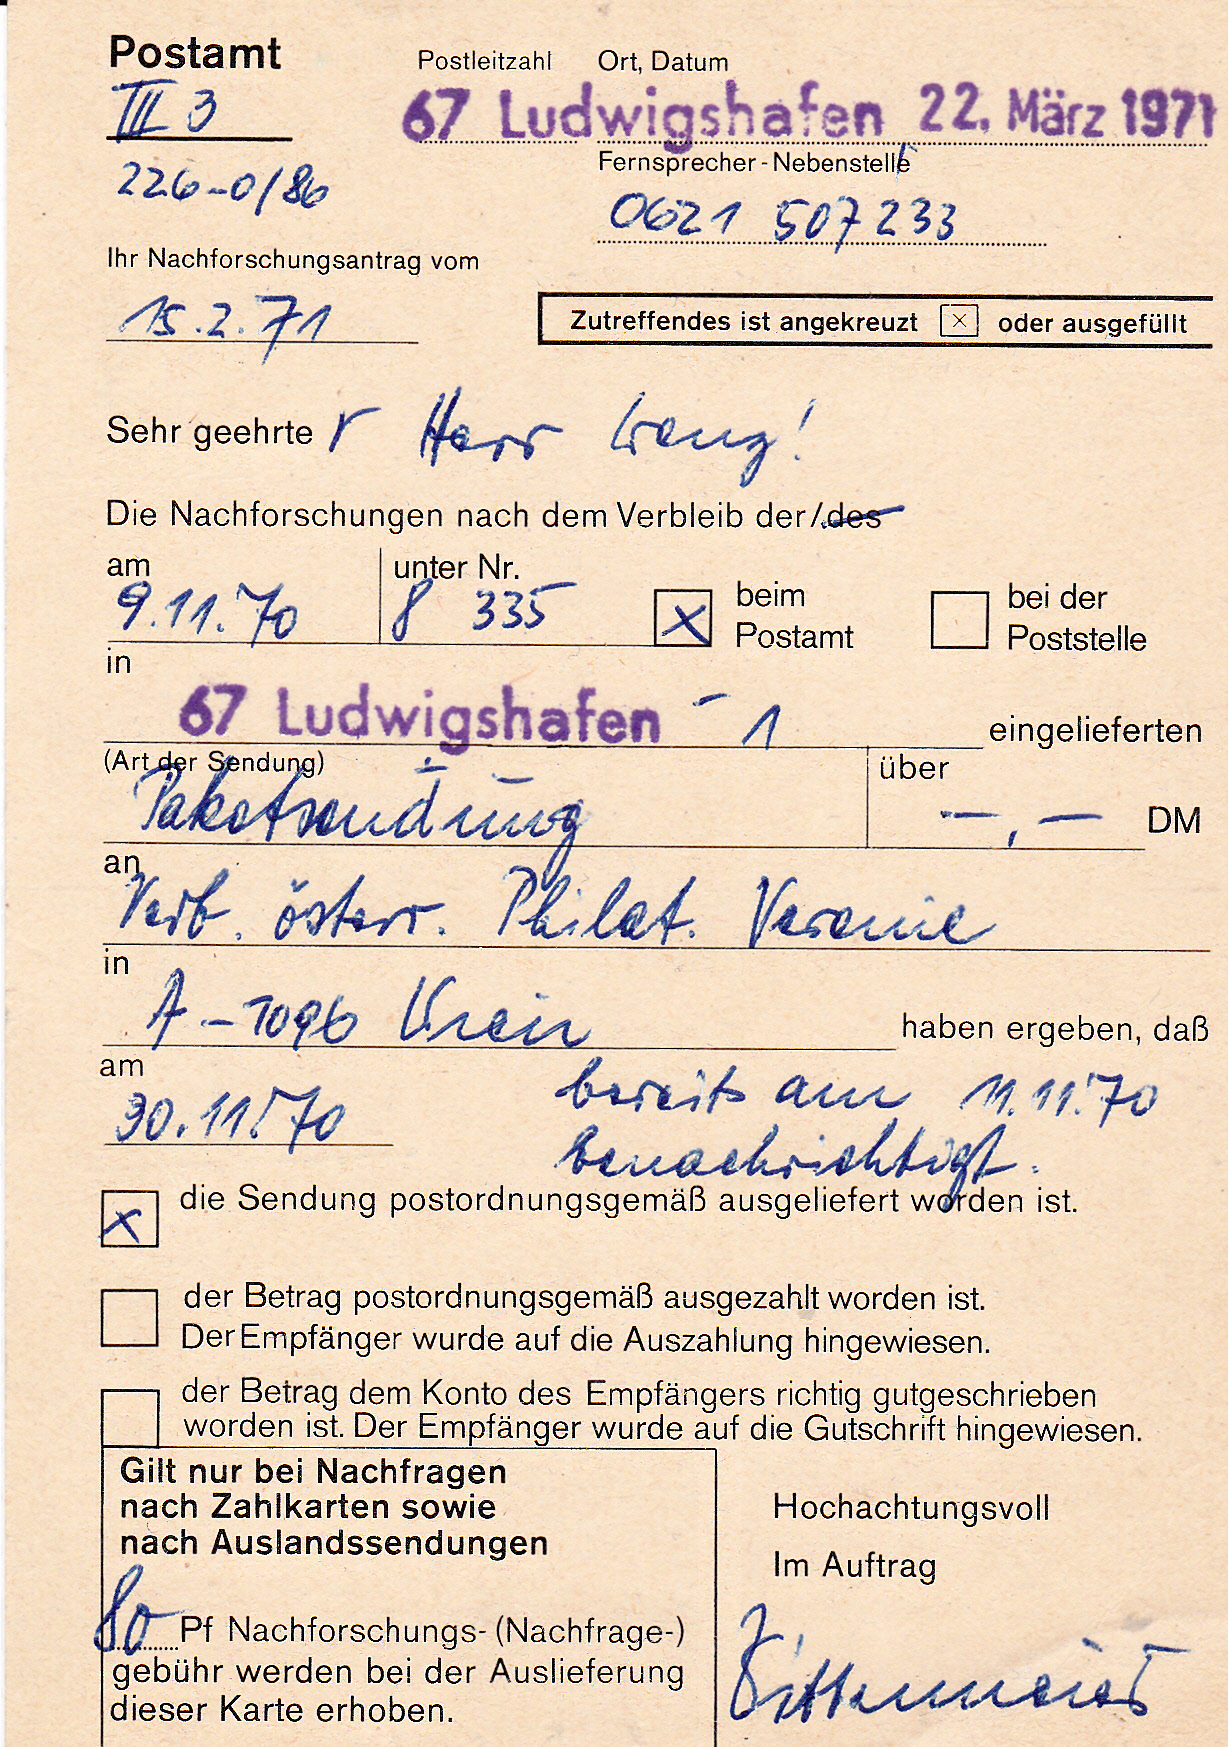 Postamt Postleitzahl Ort, Datum
III 3 67 Ludwigshafen 22. März 1971
226-0/86 Fernsprecher-Nebenstelle
0621 507 233
Ihr Nachforschungsantrag vom
15.2.71 Zutreffendes ist angekreuzt ☒ oder ausgefüllt
Sehr geehrte r Herr
Die Nachforschungen nach dem Verbleib der/des
am unter Nr. beim bei der
9.11.70 8 335 ☒ Postamt ☐ Poststelle
in
67 Ludwigshafen - 1 eingelieferten
(Art der Sendung) über
Paketsendung —,— DM
an
Verb. österr. Philat. Vereine
in
A-1096 Wien haben ergeben, daß
am bereits am 11.11.70
30.11.70 benachrichtigt.
☒ die Sendung postordnungsgemäß ausgeliefert worden ist.
☐ der Betrag postordnungsgemäß ausgezahlt worden ist.
Der Empfänger wurde auf die Auszahlung hingewiesen.
☐ der Betrag dem Konto des Empfängers richtig gutgeschrieben
worden ist. Der Empfänger wurde auf die Gutschrift hingewiesen.
Gilt nur bei Nachfragen
nach Zahlkarten sowie
nach Auslandssendungen
Hochachtungsvoll
Im Auftrag
80 Pf Nachforschungs- (Nachfrage-)
gebühr werden bei der Auslieferung
dieser Karte erhoben.